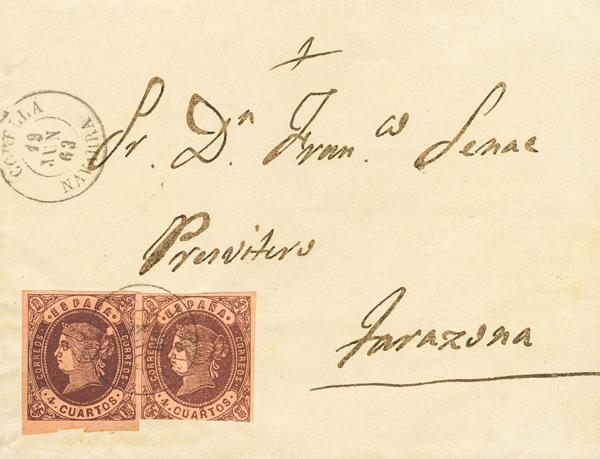 CORELLA
12
JUN
63
NAVARRA
Sr. Dn. Franco Senac
Presvitero
Tarazona
ESPAÑA
CORREOS.
CORREOS.
4. CUARTOS
ESPAÑA
CORREOS.
CORREOS.
4. CUARTOS